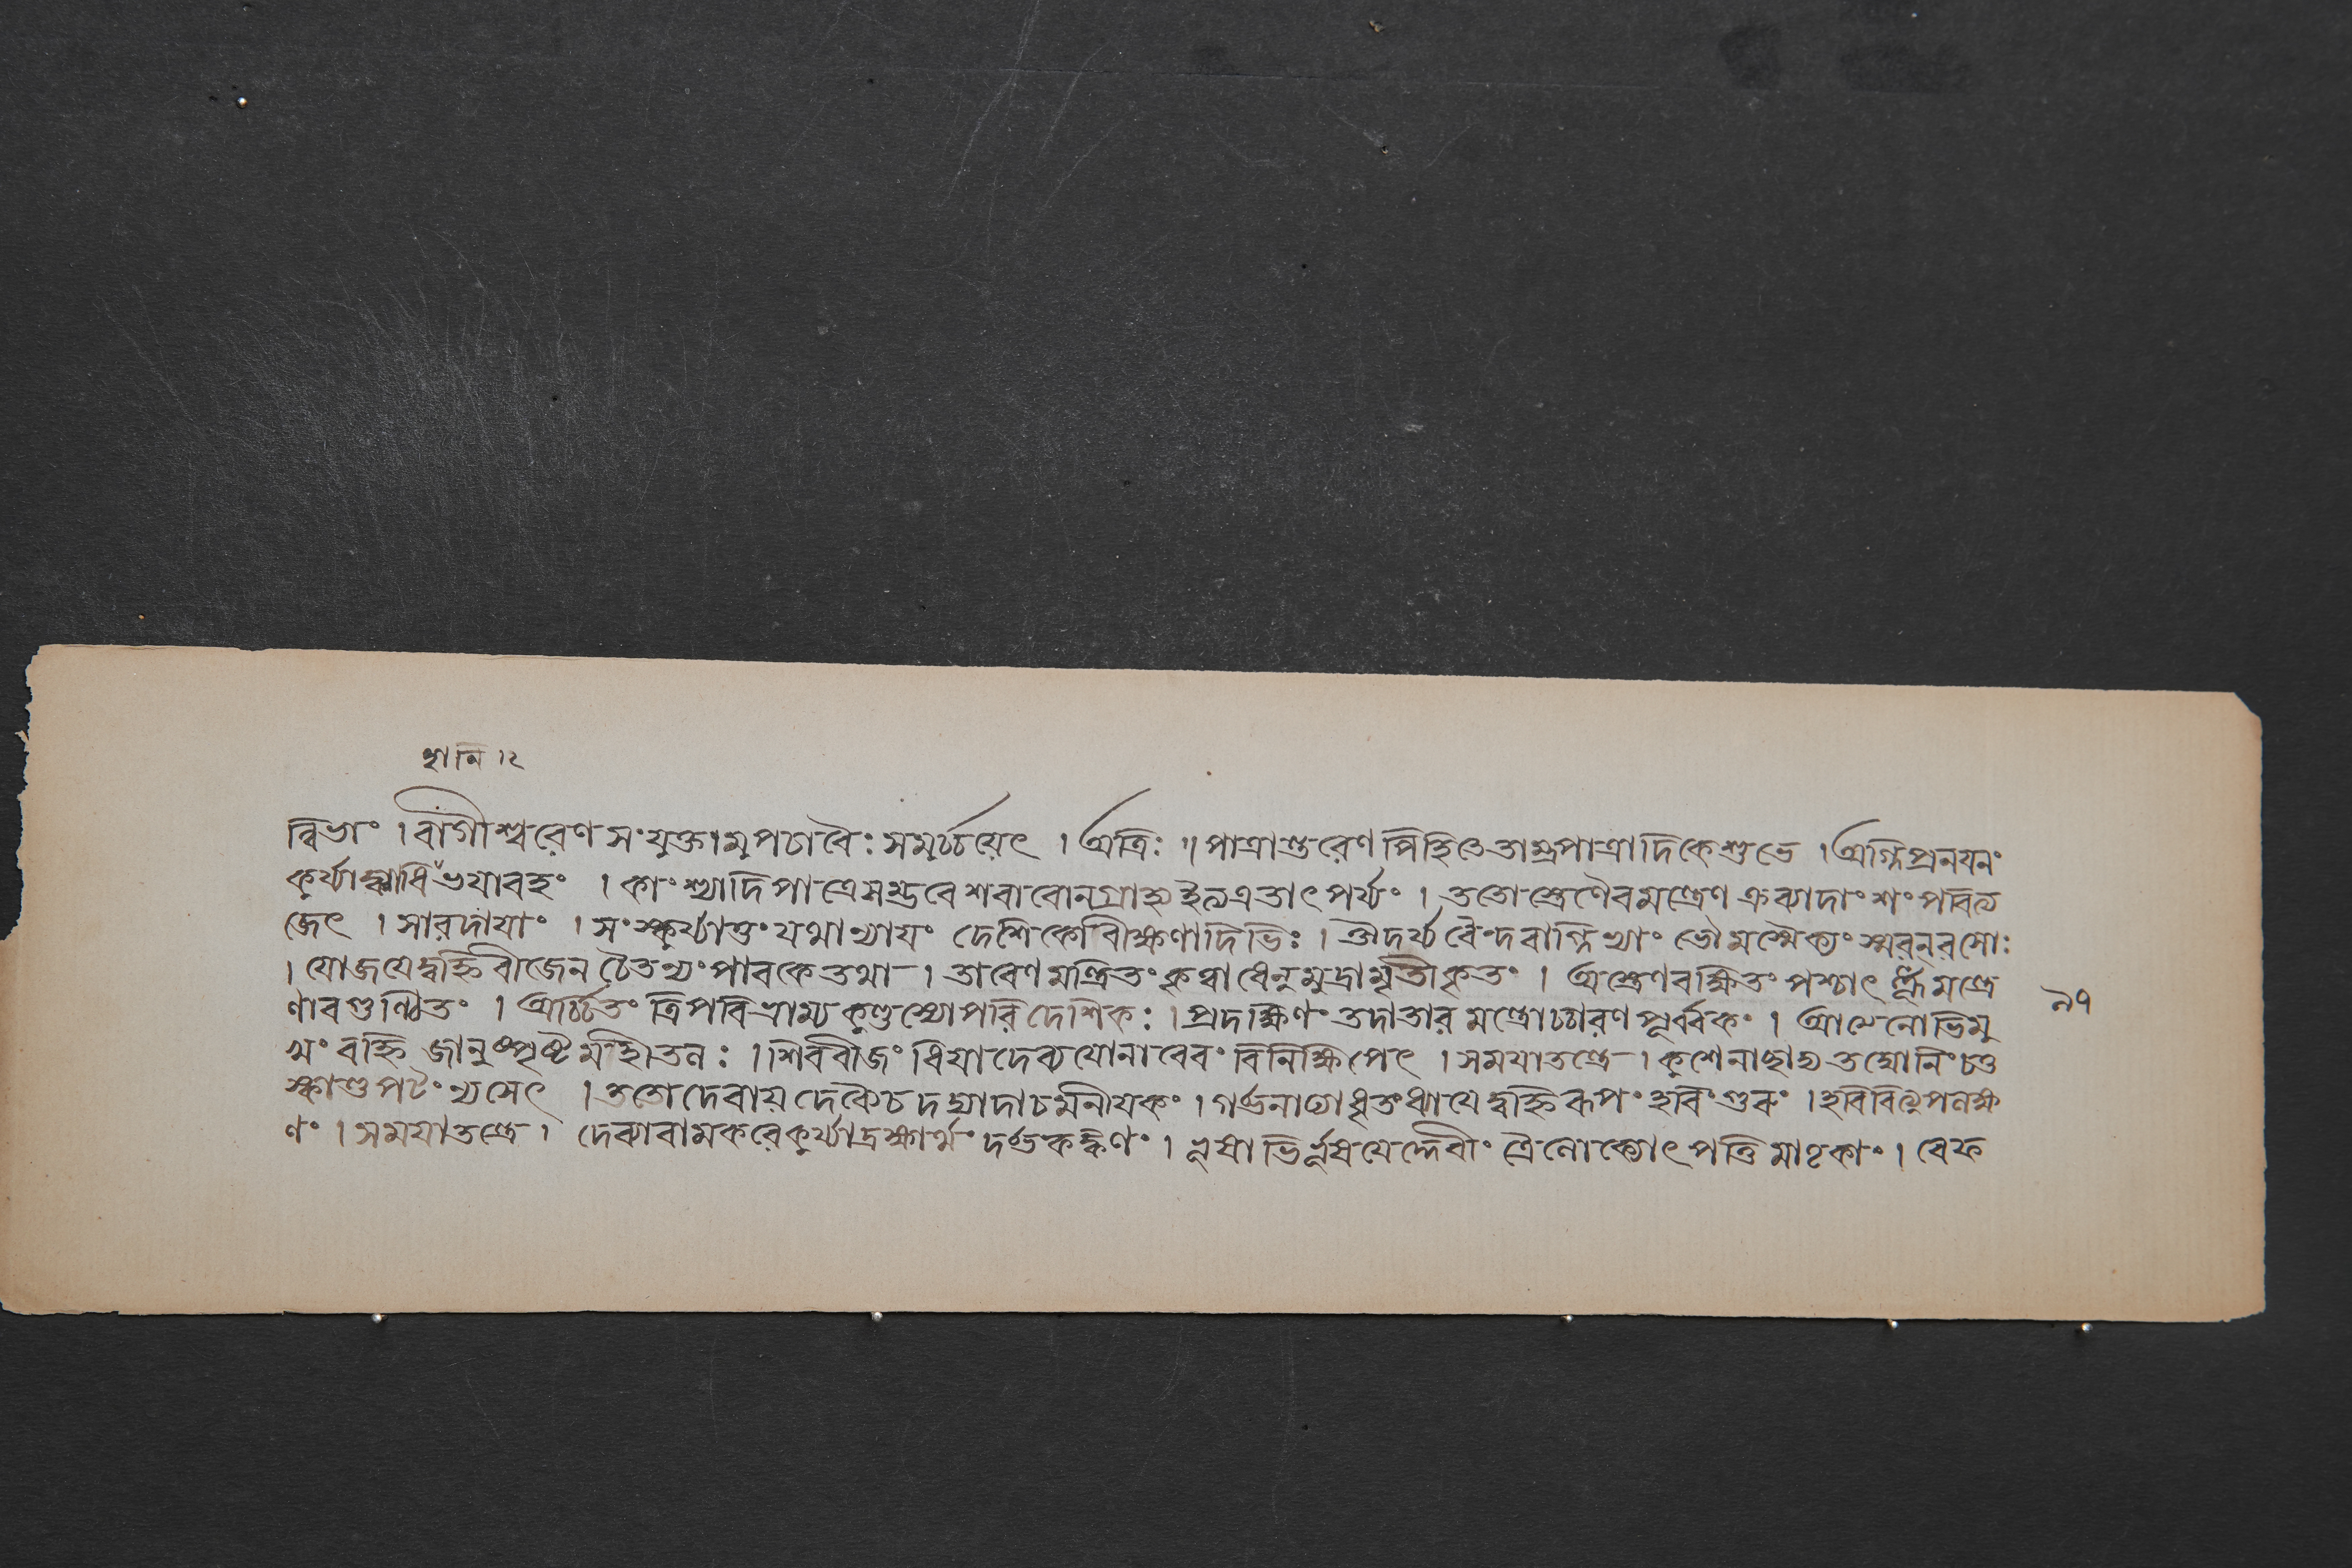 হানি ১২
ন্নিভাং । বাগীশ্বরেণ সংযুক্তামুপচারৈঃ সমর্চ্চয়েৎ । অত্রিঃ ॥ পাত্রান্তরেণ পিহিতে তাম্রপাত্রাদিকে শুভে । অগ্নিপ্রনয়নং
কুর্য্যাচ্ছরাবে ভয়াবহং । কাংশ্যাদিপাত্রে সম্ভবে শরাবো ন গ্রাহ্য ইত্যত্র তাৎপর্য্যং । ততোস্ত্রেণৈব মন্ত্রেণ ক্রব্যাদাংশং পরিত্য
জেৎ । সারদায়াং । সংস্কুর্য্যাত্তং যথান্যায়ং দেশিকো বীক্ষণাদিভিঃ । ঔদর্য্য বৈন্দবাগ্নিভ্যাং ভৌমস্যৈক্যং স্মরন্ বসোঃ
। যোজয়েদ্বহ্নিবীজেন চৈতন্যং পাবকে তথা । তারেণ মন্ত্রিতং কৃত্বা ধেনুমুদ্রামৃতীকৃতং । অস্ত্রেণ রক্ষিতং পশ্চাৎ মন্ত্রে
ণাবগুণ্ঠিতং । অর্চ্চিতং ত্রিপরিভ্রাম্য কুণ্ডস্যোপরি দেশিকঃ । প্রদক্ষিণং তদা তারমন্ত্রোচ্চারণপূর্ব্বকং । আত্মনোভিমু
খং বহ্নি জানুস্পৃষ্টমহীতলঃ । শিববীজং ধিয়া দেব্যযোনাবেবং বিনিক্ষিপেৎ । সময়াতন্ত্রে । কুশেনাচ্ছাদ্য তদ্যোনিং
পটং ন্যসেৎ । ততো দেবায় দেব্যৈ চ দদ্যাদাচমনীয়কং । গর্ভনাড্যাং ধৃতং ধ্যায়েদ্বহ্নিরূপং
ণং । সময়াতন্ত্রে । দেব্যা বামকরে কুর্য্যাদ্রক্ষার্থং দর্ভকঙ্কণং । ভূষাভির্ভূষয়েদ্দেবীং ত্রৈলোক্যোৎপত্তিমাতৃকাং । রেফ
৯৭